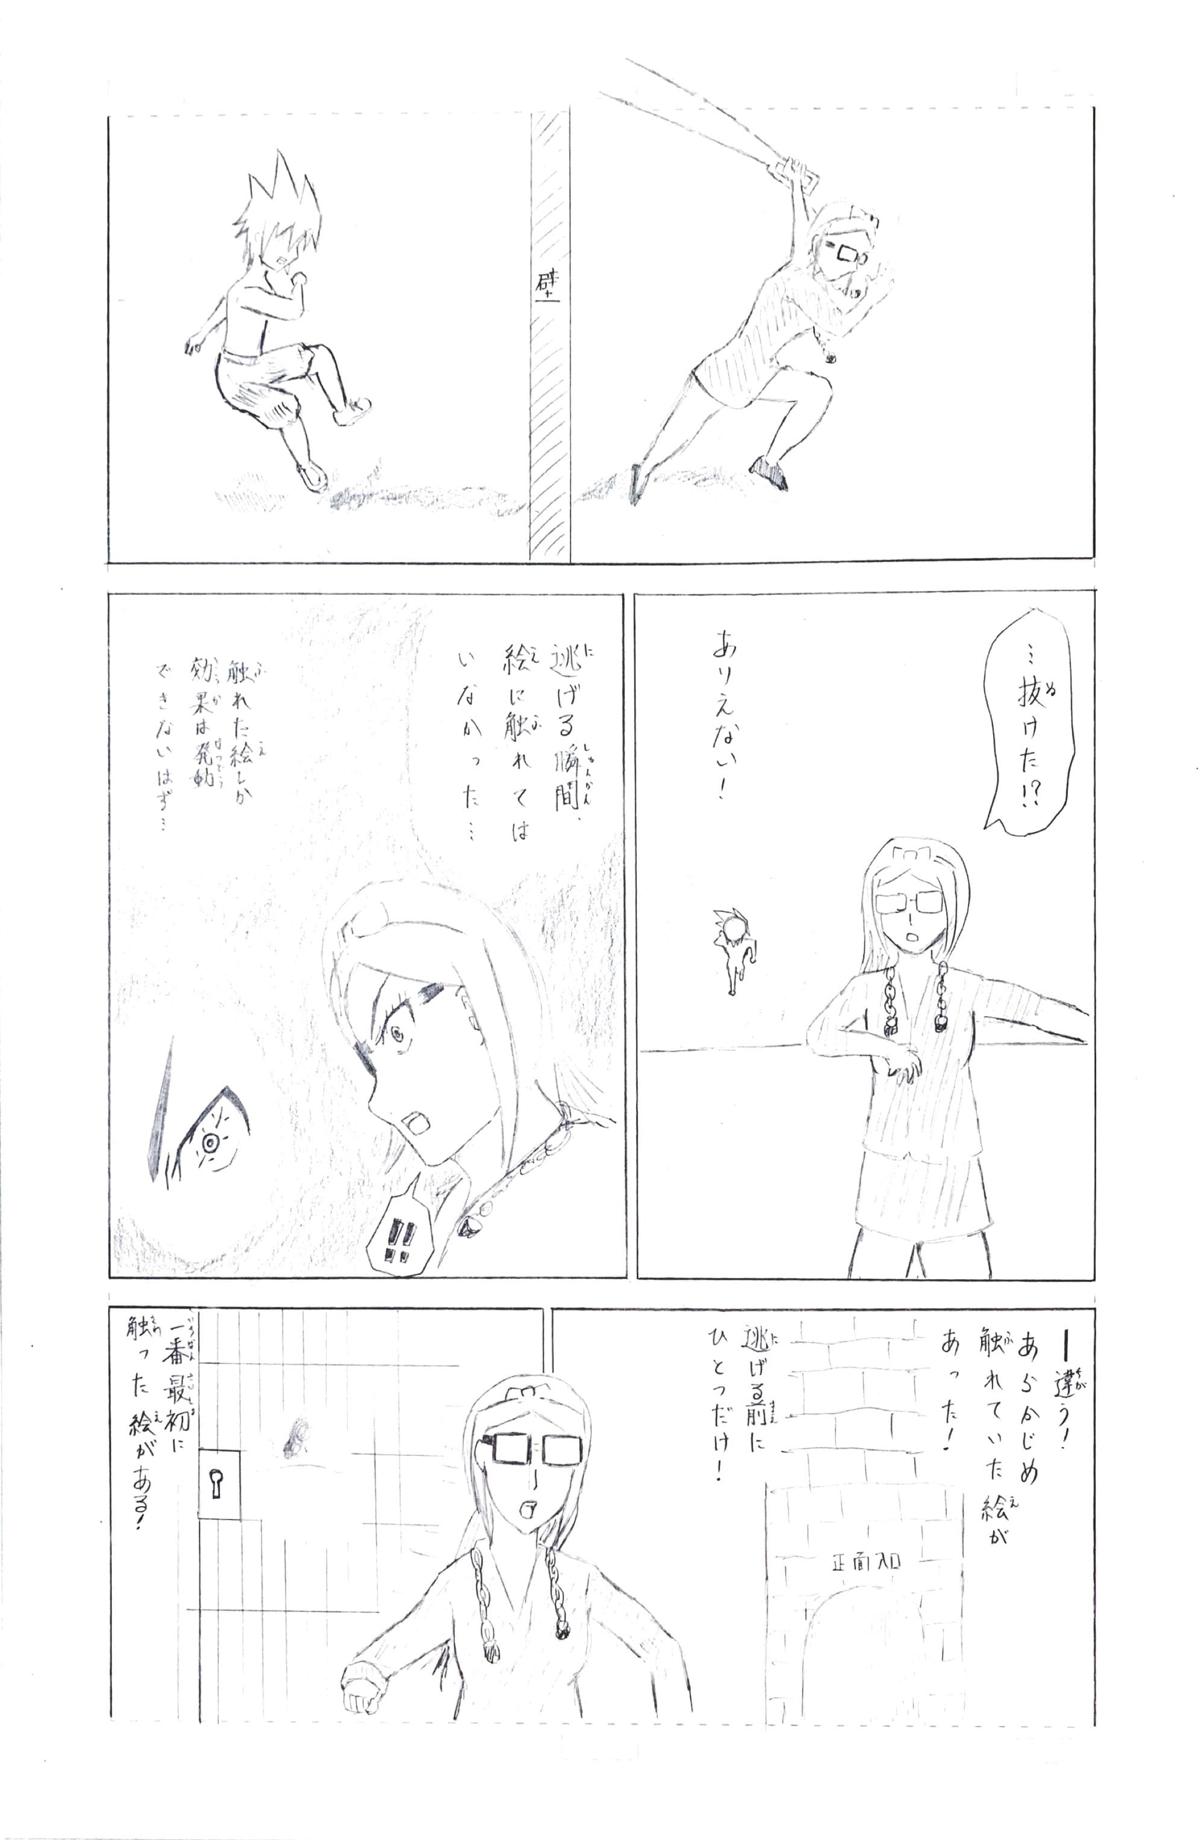 壁
…抜けた!?
ありえない！
逃げる瞬間、
絵に触れては
いなかった…
触れた絵しか
効果は発動
できないはず…
!!
ー違う！
あらかじめ
触れていた絵が
あった！
逃げる前に
ひとつだけ！
正面入口
一番最初に
触った絵がある！